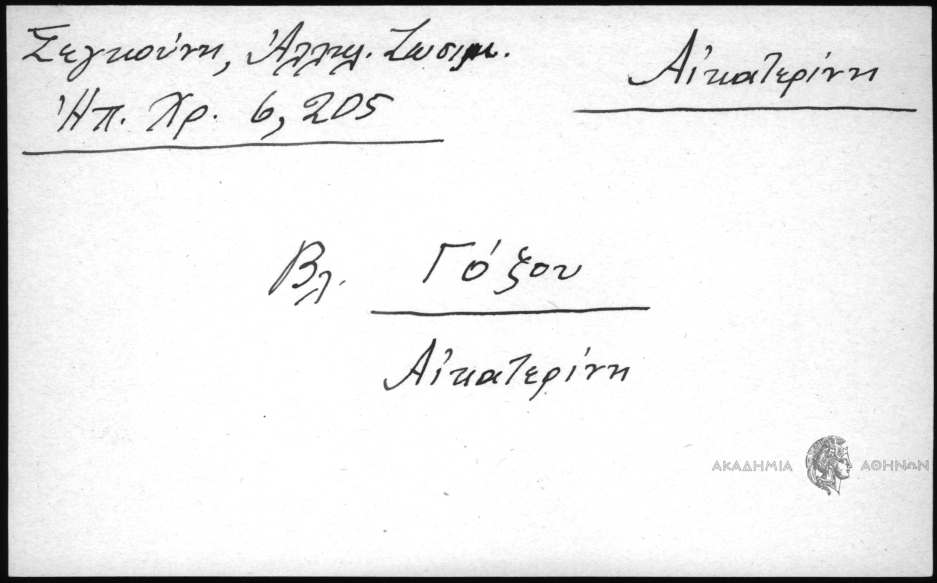 Σεγκούνη, Ἀλληλ. Ζωσιμ.
Αἰκατερίνη
Ἠπ. Χρ. 6, 205
Βλ. Γόξου
Αἰκατερίνη
ΑΚΑΔΗΜΙΑ ΑΘΗΝΩΝ